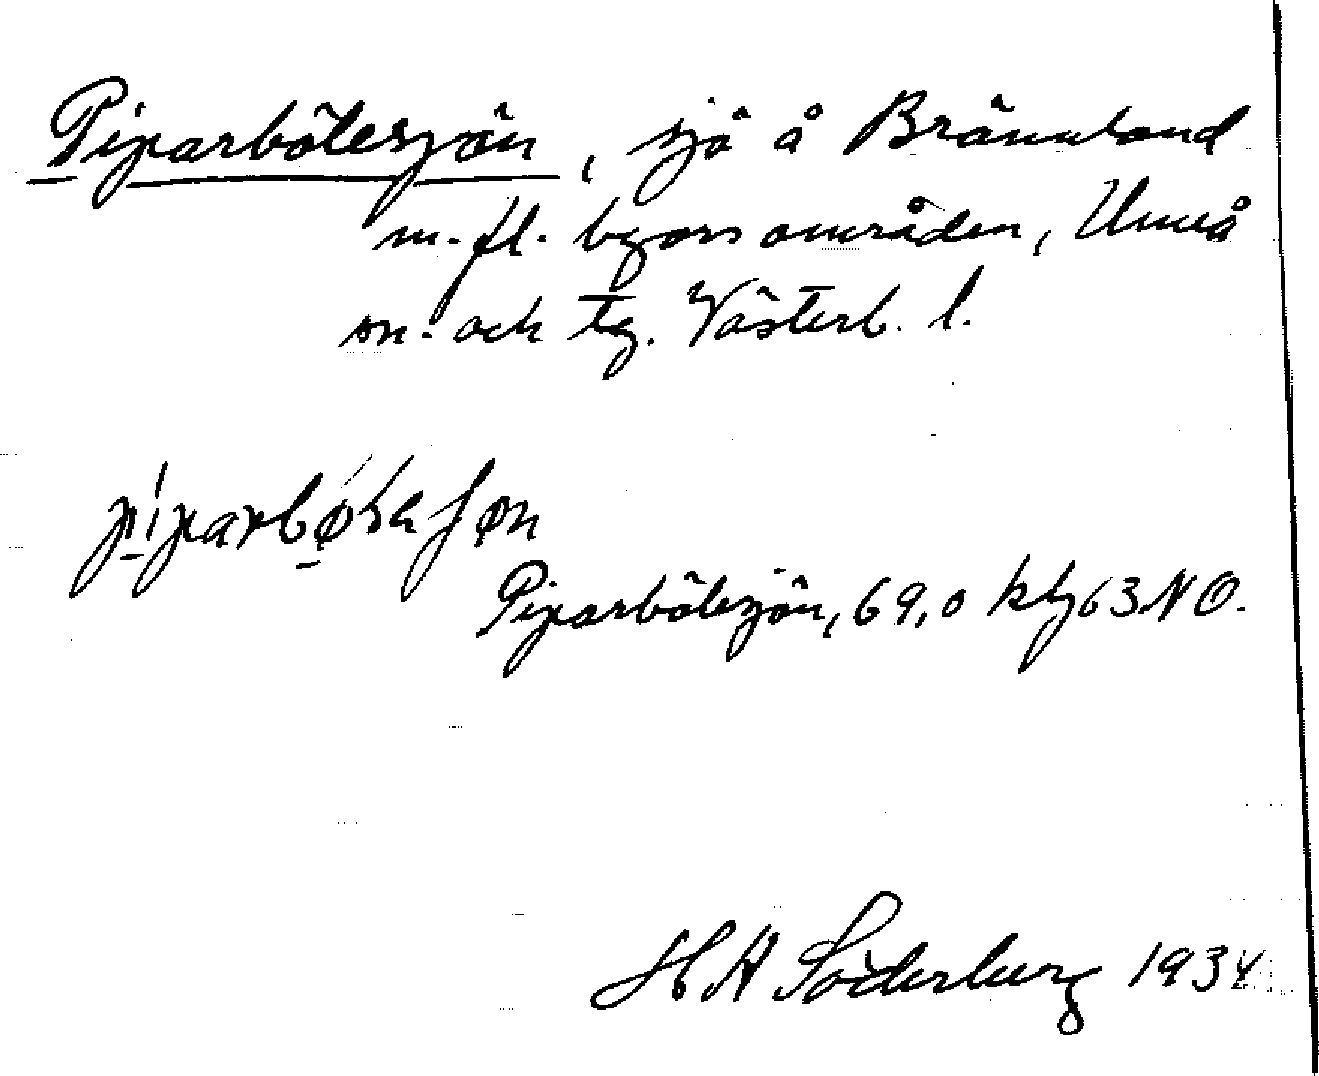 Piparbölesjön, sjö å Brännland
m. fl. byars områden, Umeå
sn. och tg. Västerb. l.
Piparbölesjön, 69,0 kbl 63 NO.
H A Söderberg 1934